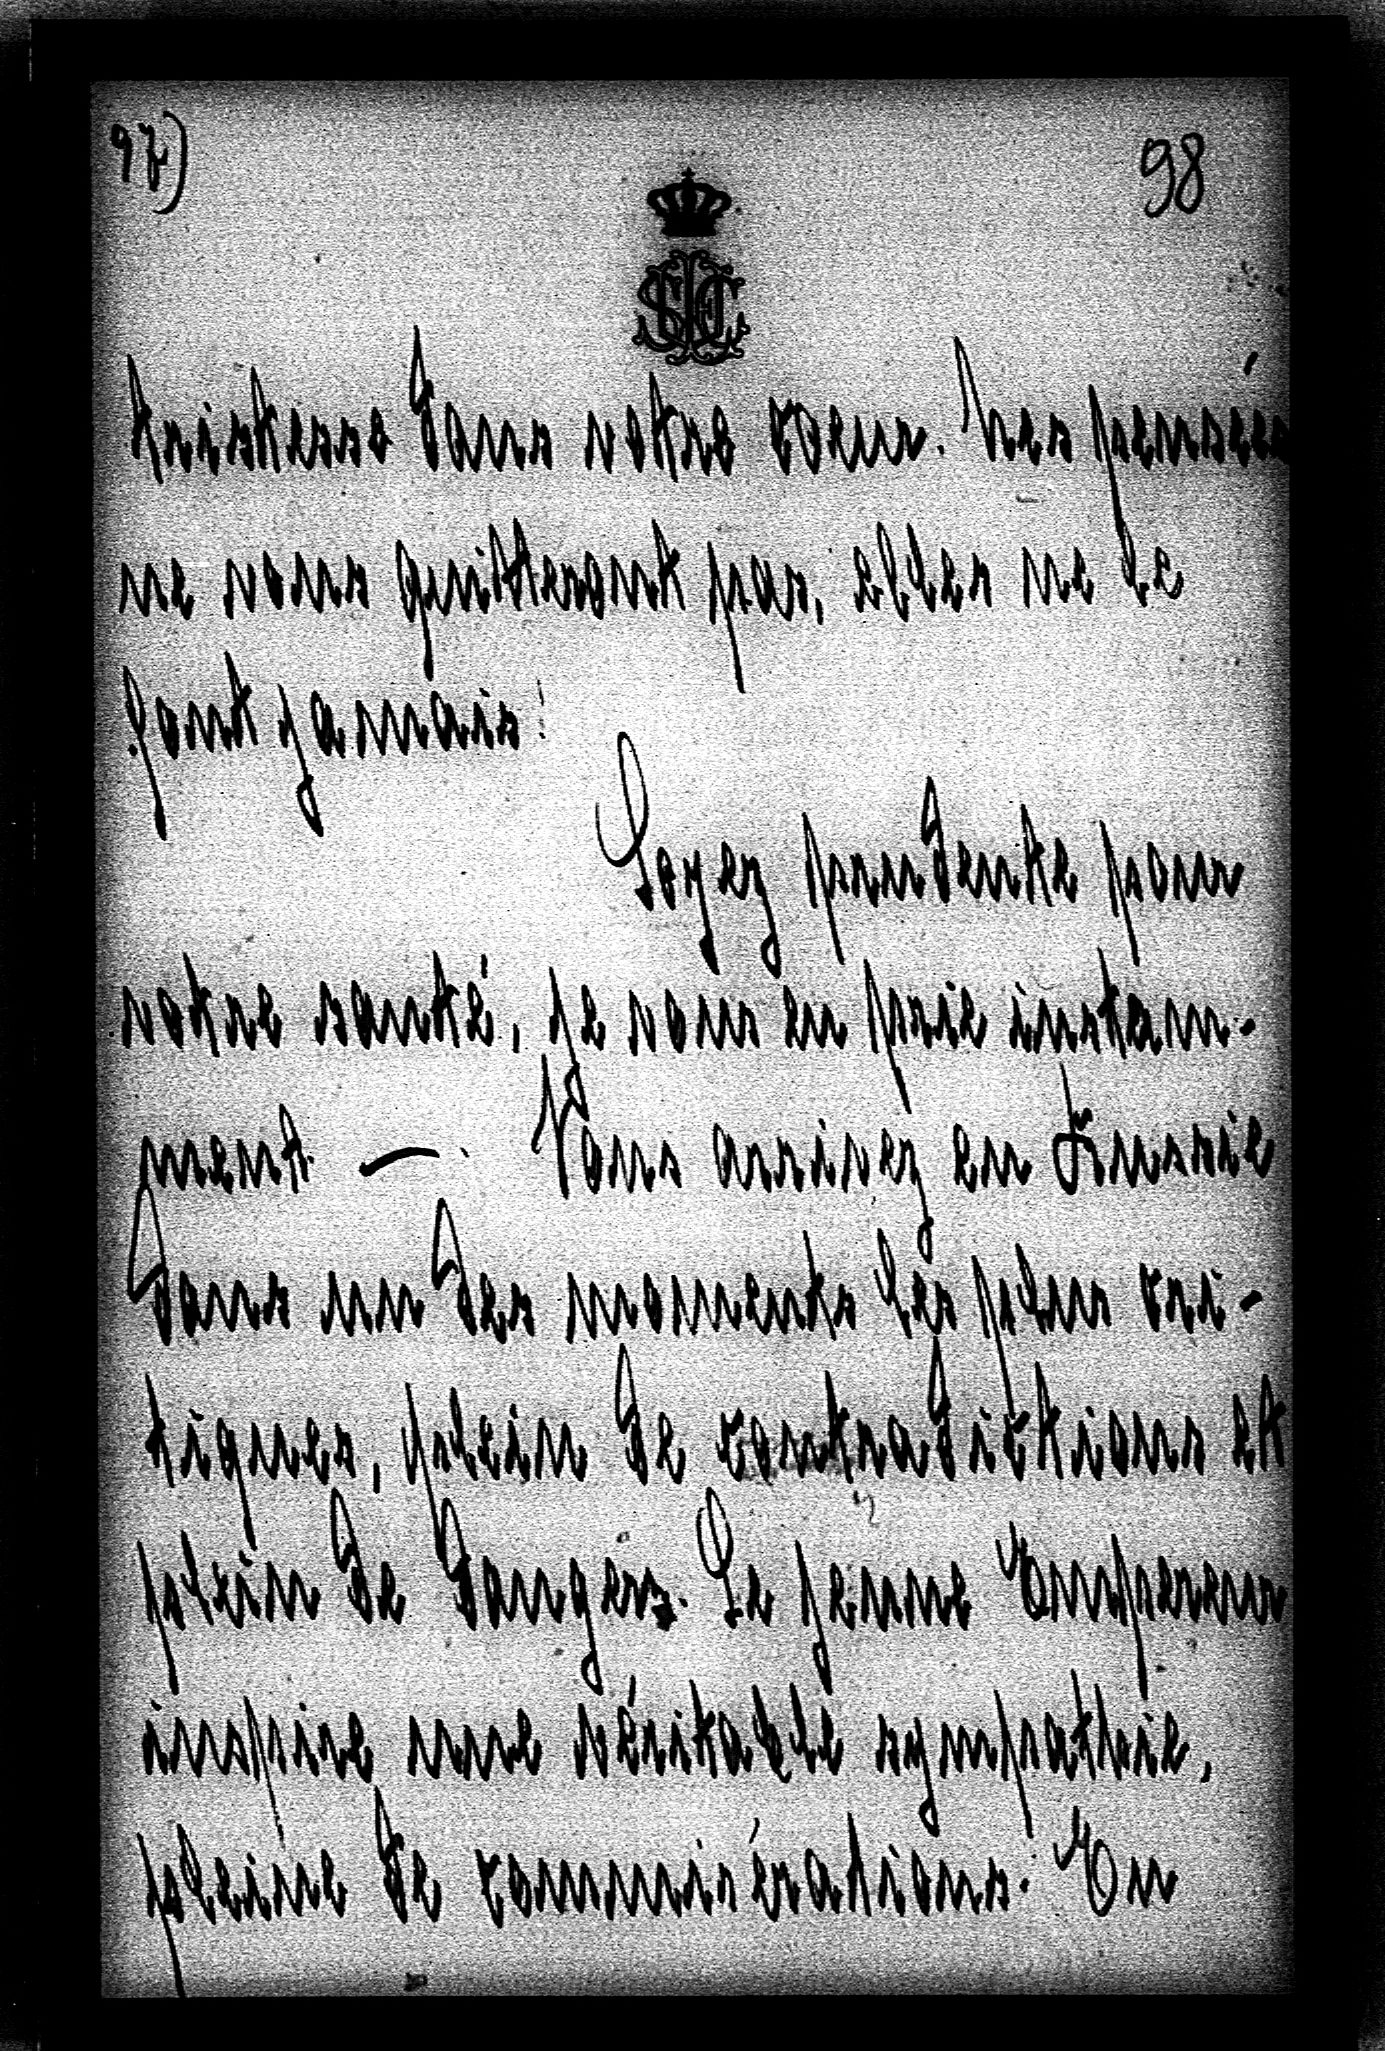 97)
98
tristesse dans votre coeur. Mes pensées
ne vous quitteront pas, elles ne le
font jamais!
Soyez prudente pour
votre santé, je vous en prie instam-
ment — Vous arrivez en Russie
dans un des moments les plus cri-
tiques, plein de contradictions et
plein de danger. Le jeune Empereur
inspire une véritable sympathie,
pleine de commisération. On